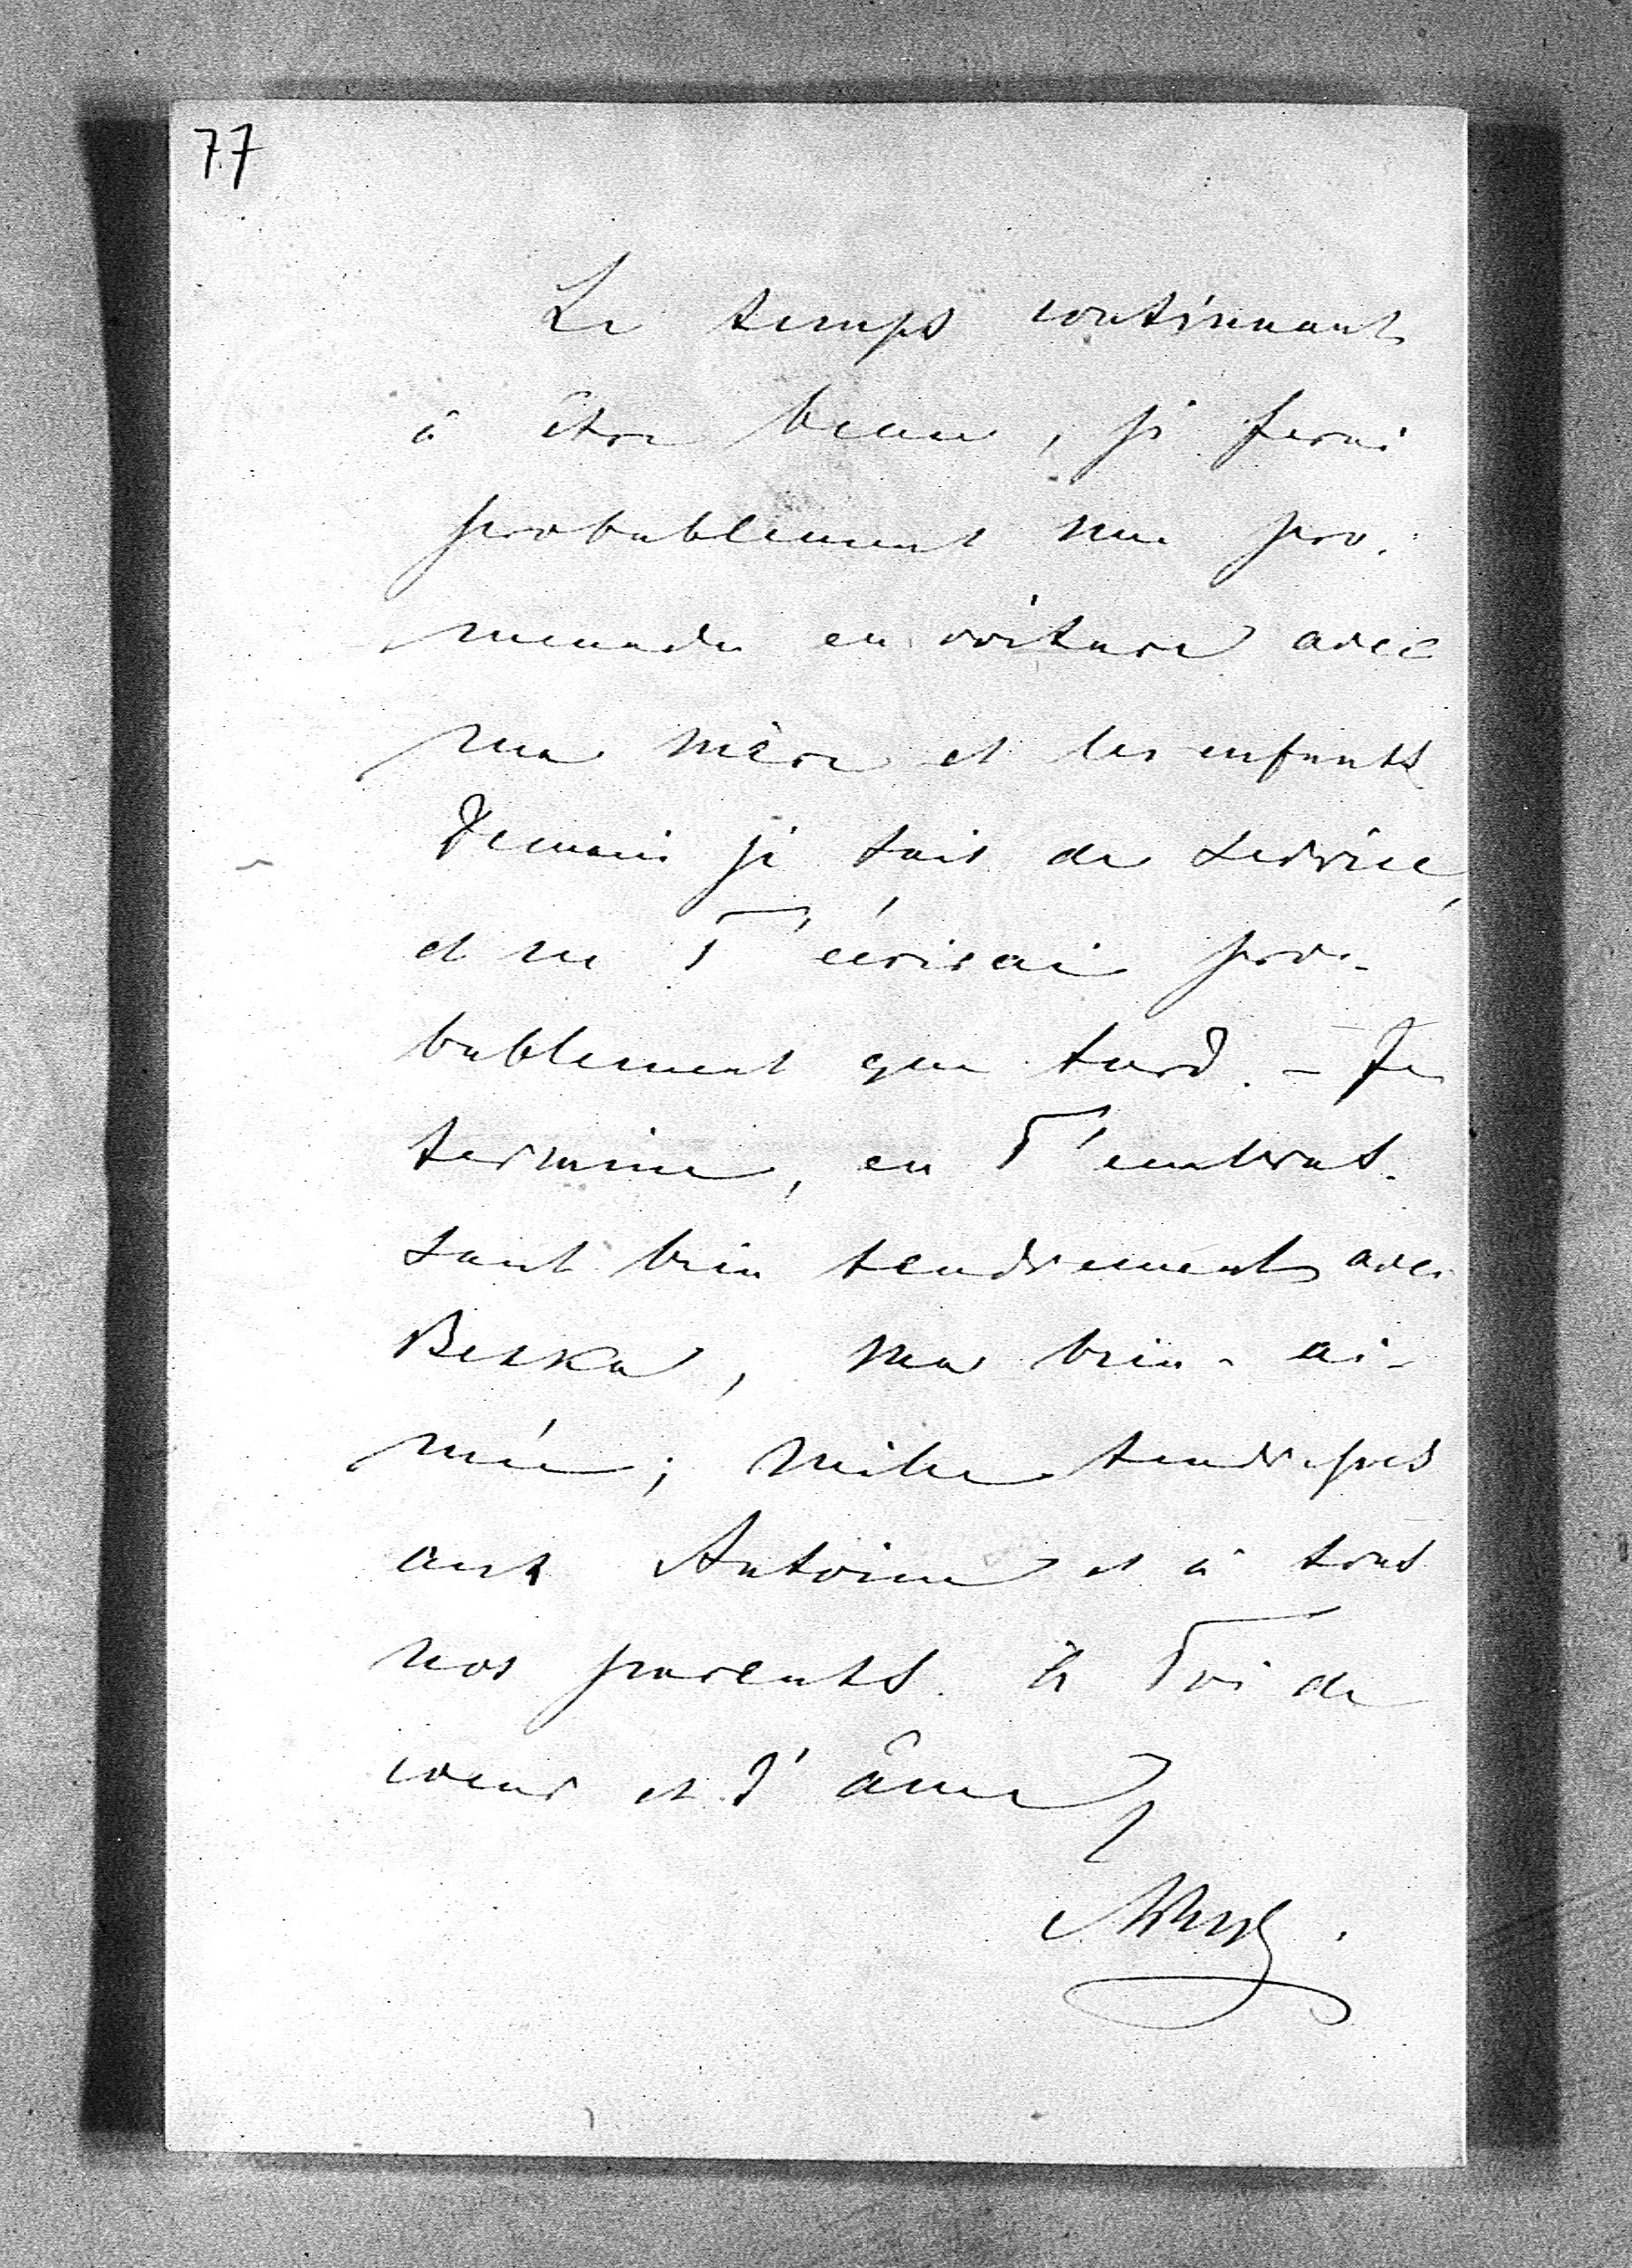 77
Le temps continuant
à être beau, je ferai
probablement une pro-
menade en voiture avec
ma mère et les enfants
Demain je suis de service,
et ne T'écrirai pro-
bablement que tard. - Je
termine, en T'embras-
sant bien tendrement avec
Beska, ma bien-ai-
mée; mille tendresses
aux Antoine et à tous
nos parents. à Toi de
coeur et d'âme